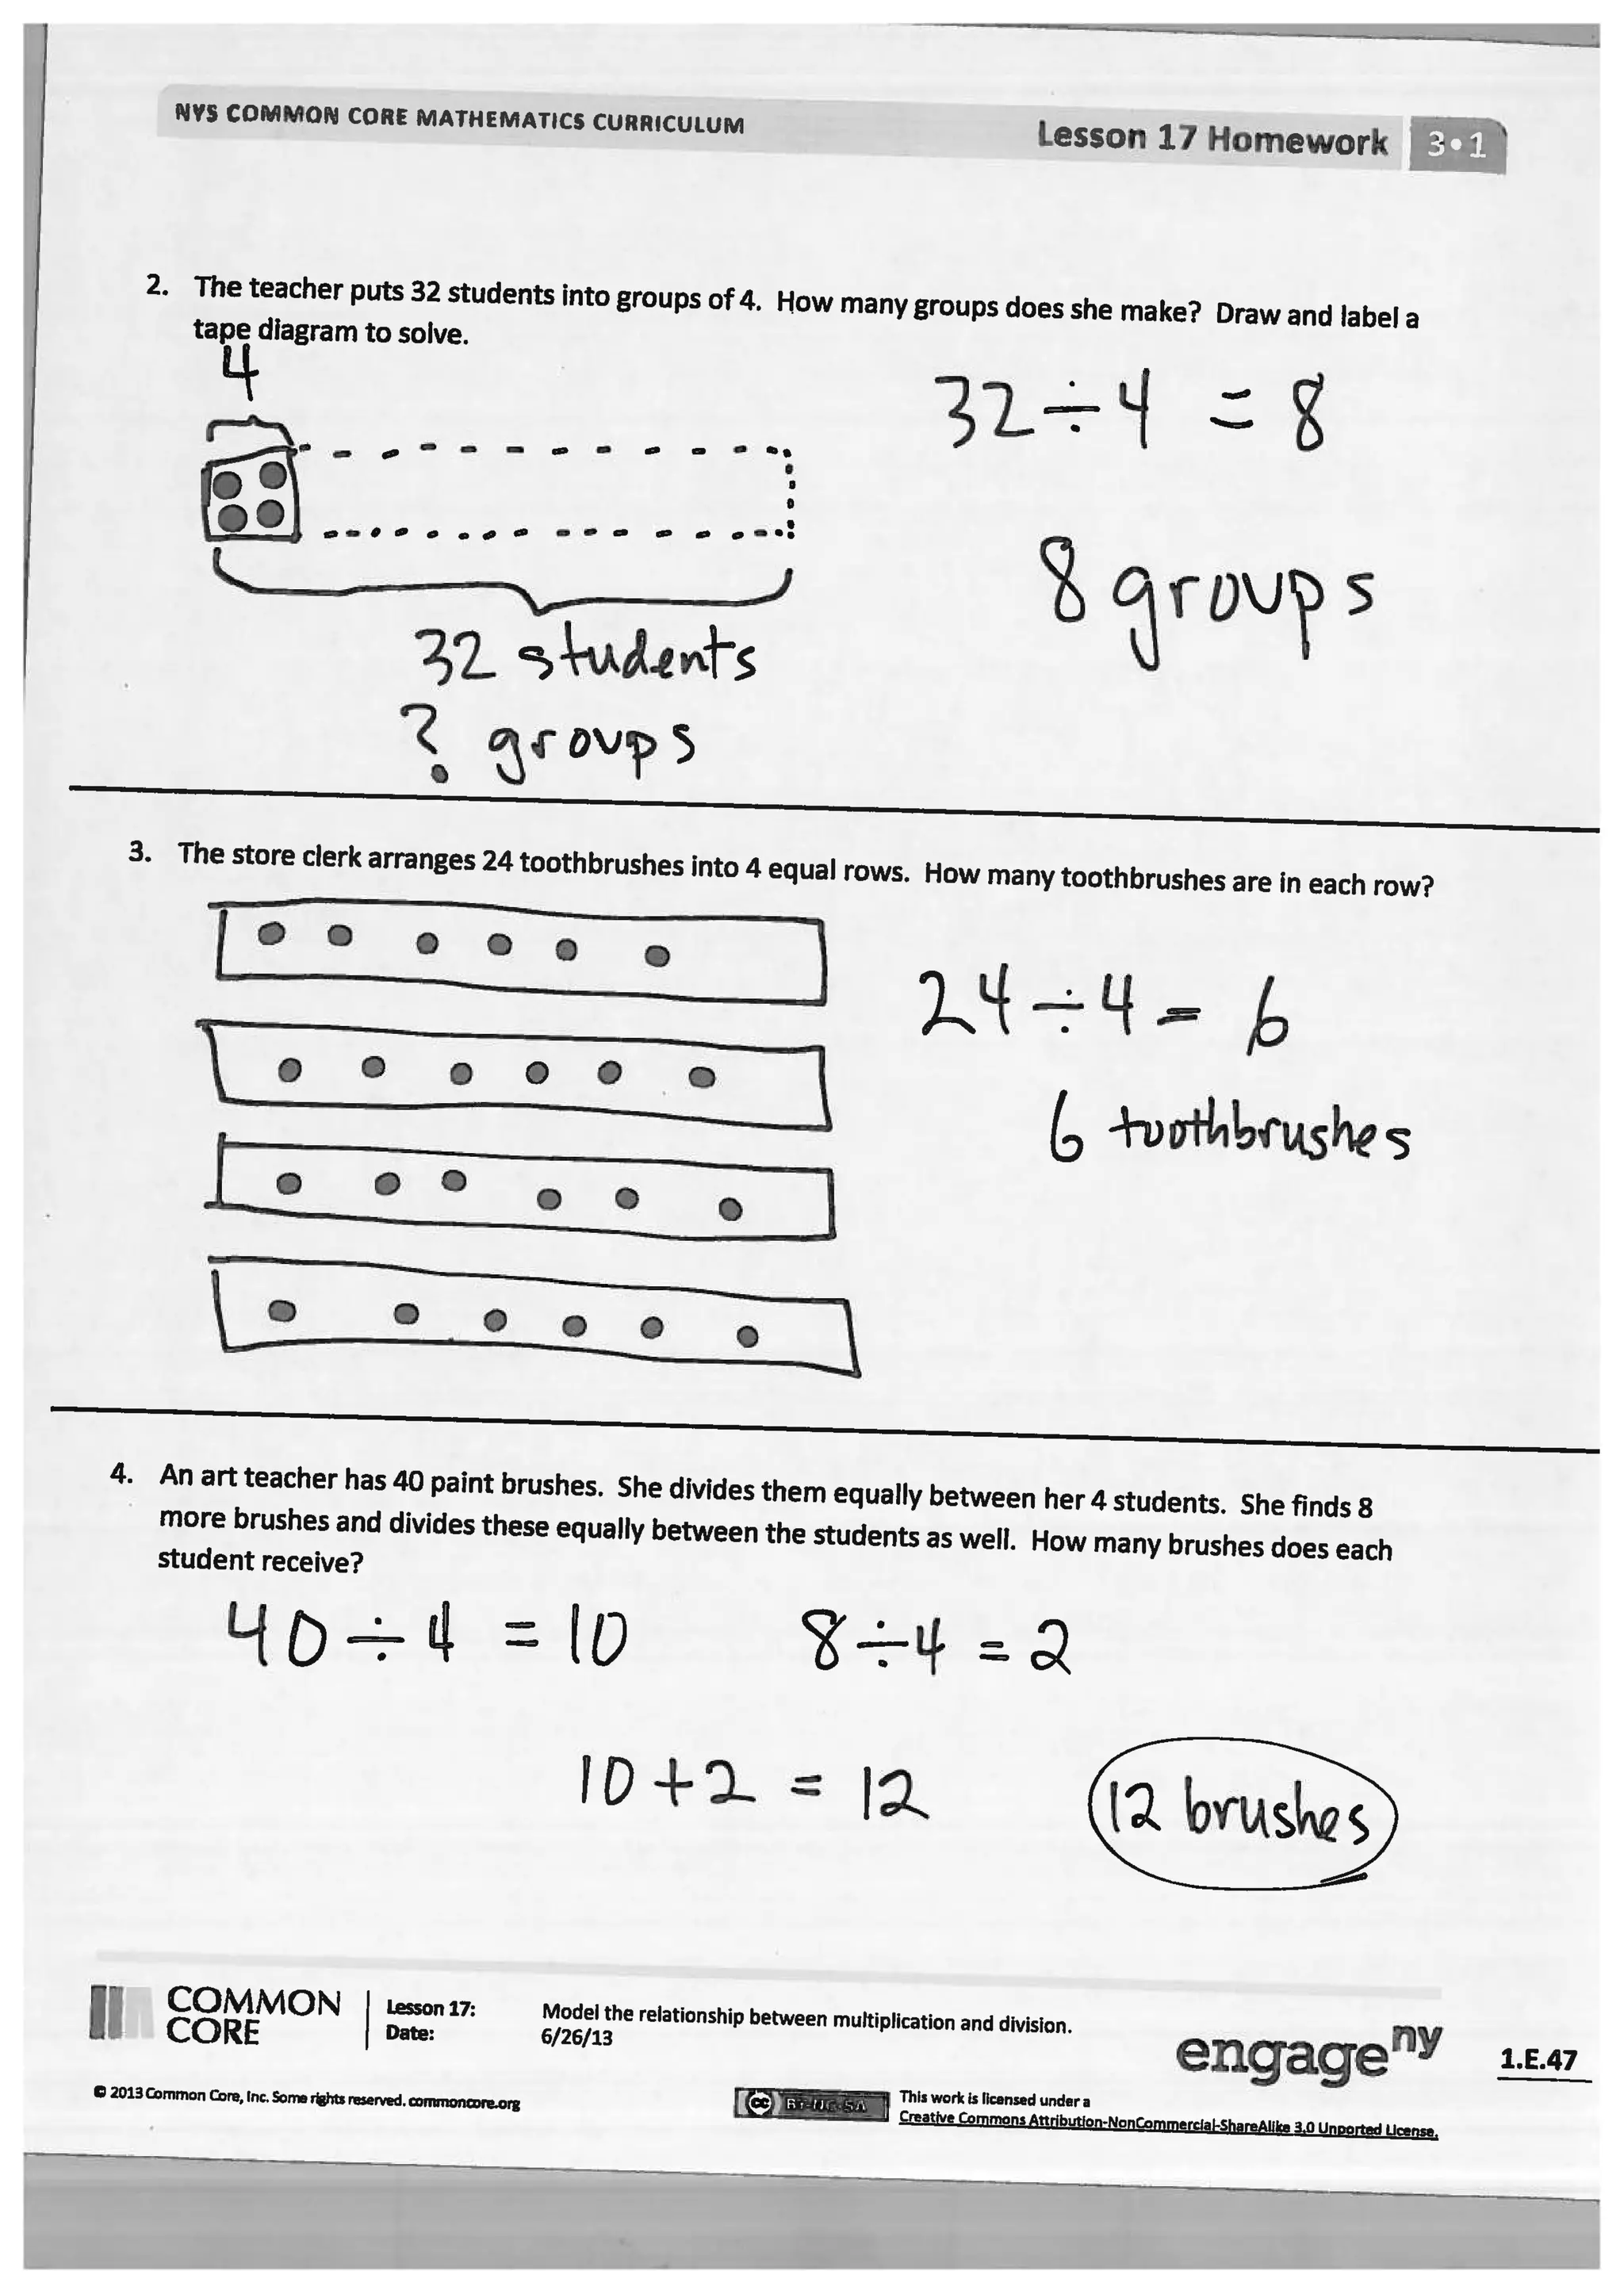 NYS COMMON CORE MATHEMATICS CURRICULUM
Lesson 17 Homework 3•1
2. The teacher puts 32 students into groups of 4. How many groups does she make? Draw and label a
tape diagram to solve.
4
32 ÷ 4 = 8
8 groups
32 students
? groups
3. The store clerk arranges 24 toothbrushes into 4 equal rows. How many toothbrushes are in each row?
24 ÷ 4 = 6
6 toothbrushes
4. An art teacher has 40 paint brushes. She divides them equally between her 4 students. She finds 8
more brushes and divides these equally between the students as well. How many brushes does each
student receive?
40 ÷ 4 = 10 8 ÷ 4 = 2
10 + 2 = 12
12 brushes
COMMON
CORE
Lesson 17: Model the relationship between multiplication and division.
Date: 6/26/13
engage ny
1.E.47
© 2013 Common Core, Inc. Some rights reserved. commoncore.org
cc BY-NC-SA
This work is licensed under a
Creative Commons Attribution-NonCommercial-ShareAlike 3.0 Unported License.